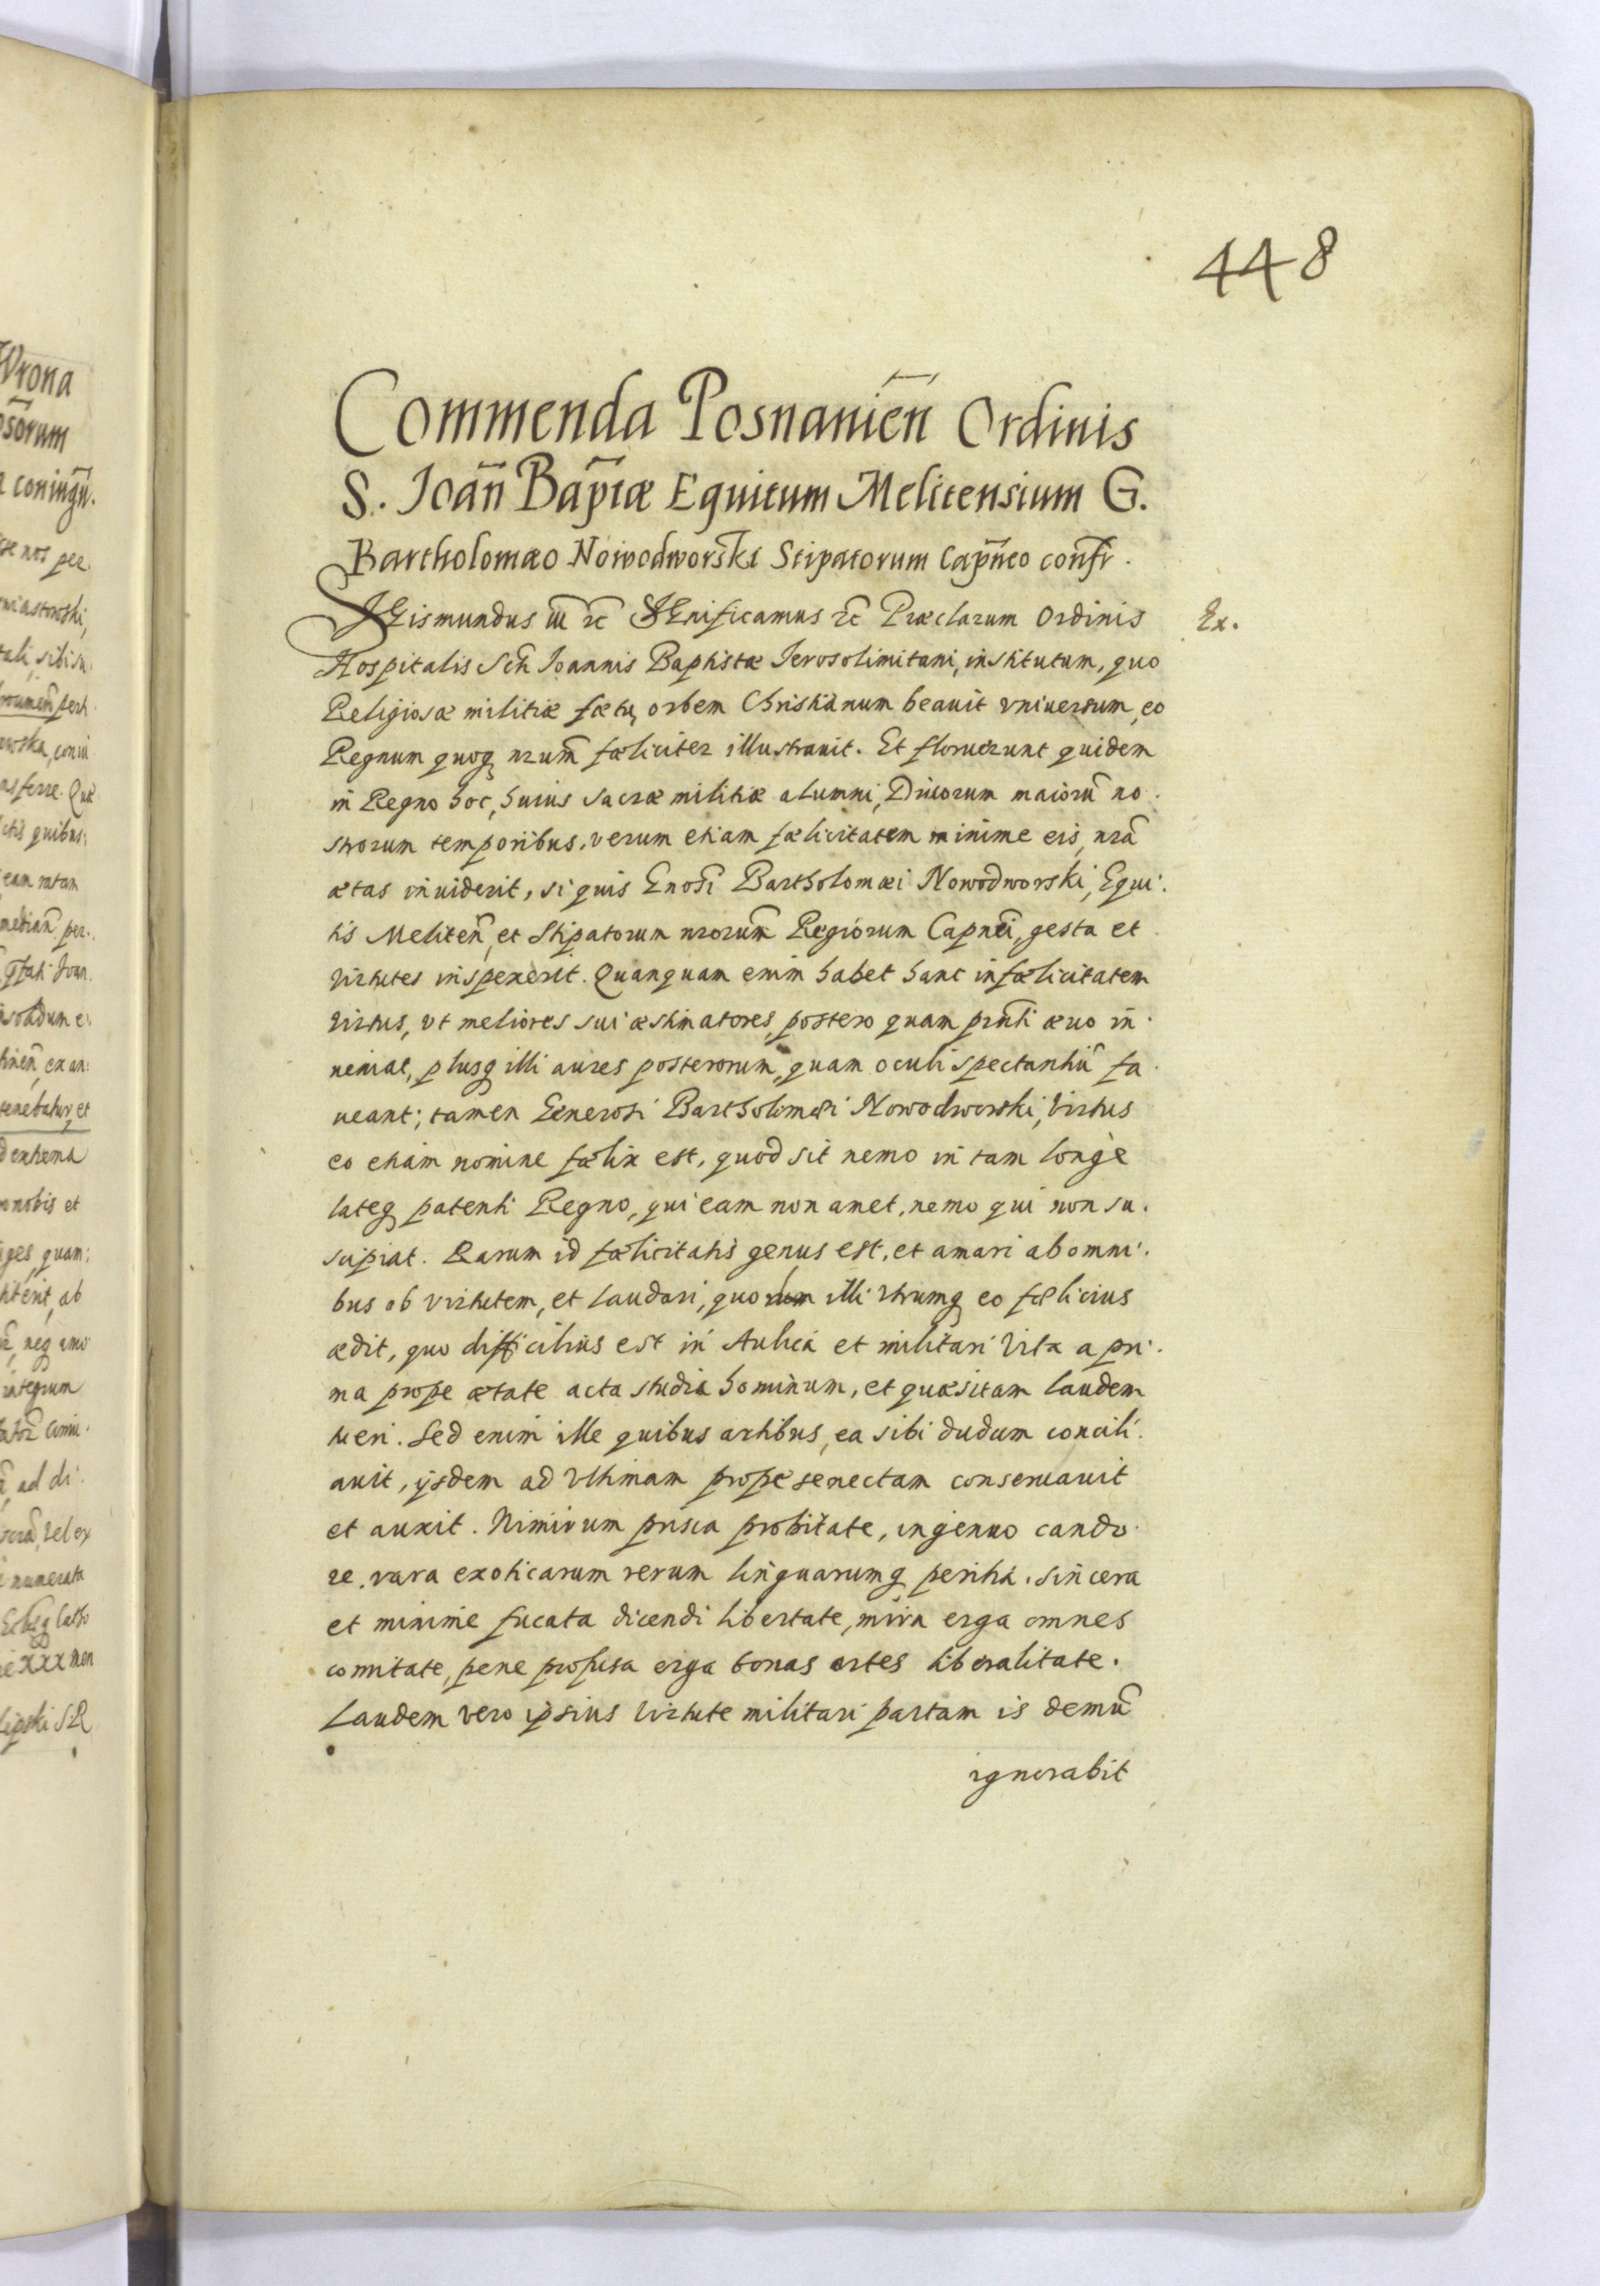 448
Commenda Posnanien̄ Ordinis
S. Joan̄ Bap̄tæ Equitum Melitensium G.
Bartholomæo Nowodworski Stipatorum Cap̄neo conf̄r.
SGismundus III etc̄ SGnificamus etc̄ Præclarum Ordinis
Ex.
Hospitalis Scti Joannis Baptistæ Jerosolimitani, institutum, quo
Religiosæ militiæ fætu, orbem Christianum beauit vniuersum, eo
Regnum quoq nrum̄ fæliciter illustrauit. Et floruerunt quidem
in Regno hoc, huius sacræ militiæ alumni, Diuorum maiorū no.
strorum temporibus. verum etiam fælicitatem minime eis, nrā
ætas inuiderit, si quis Gnosi Bartholomæi Nowodworski, Equi.
tis Meliten̄, et Stipatorum nrorum̄ Regiorum Capnei, gesta et
virtutes inspexerit. Quanquam enim habet hanc infælicitatem
virtus, vt meliores sui æstimatores, postero quam prnti æuo in.
ueniat, plusq illi aures posterorum, quam oculi spectantiū fa.
ueant; tamen Generosi Bartholomæi Nowodworski, virtus
eo etiam nomine fælix est, quod sit nemo in tam longè
lateq patenti Regno, qui eam non amet, nemo qui non su.
scipiat. Rarum id fælicitatis genus est, et amari ab omni.
bus ob virtutem, et laudari, quorum illi vtrumq eo fælicius
cædit, quo difficilius est in Aulica et militari vita a pri.
ma prope ætate acta studia hominum, et quæsitam laudem
tueri. Sed enim ille quibus artibus, ea sibi dudum concili.
auit, ijsdem ad vltimam prope senectam conseruauit
et auxit. Nimirum prisca probitate, ingenuo cando.
re. rara exoticarum rerum linguarumq peritia. sincera
et minime fucata dicendi libertate, mira erga omnes
comitate, pene profusa erga bonas artes liberalitate.
Laudem vero ipsius virtute militari partam is demū
ignorabit